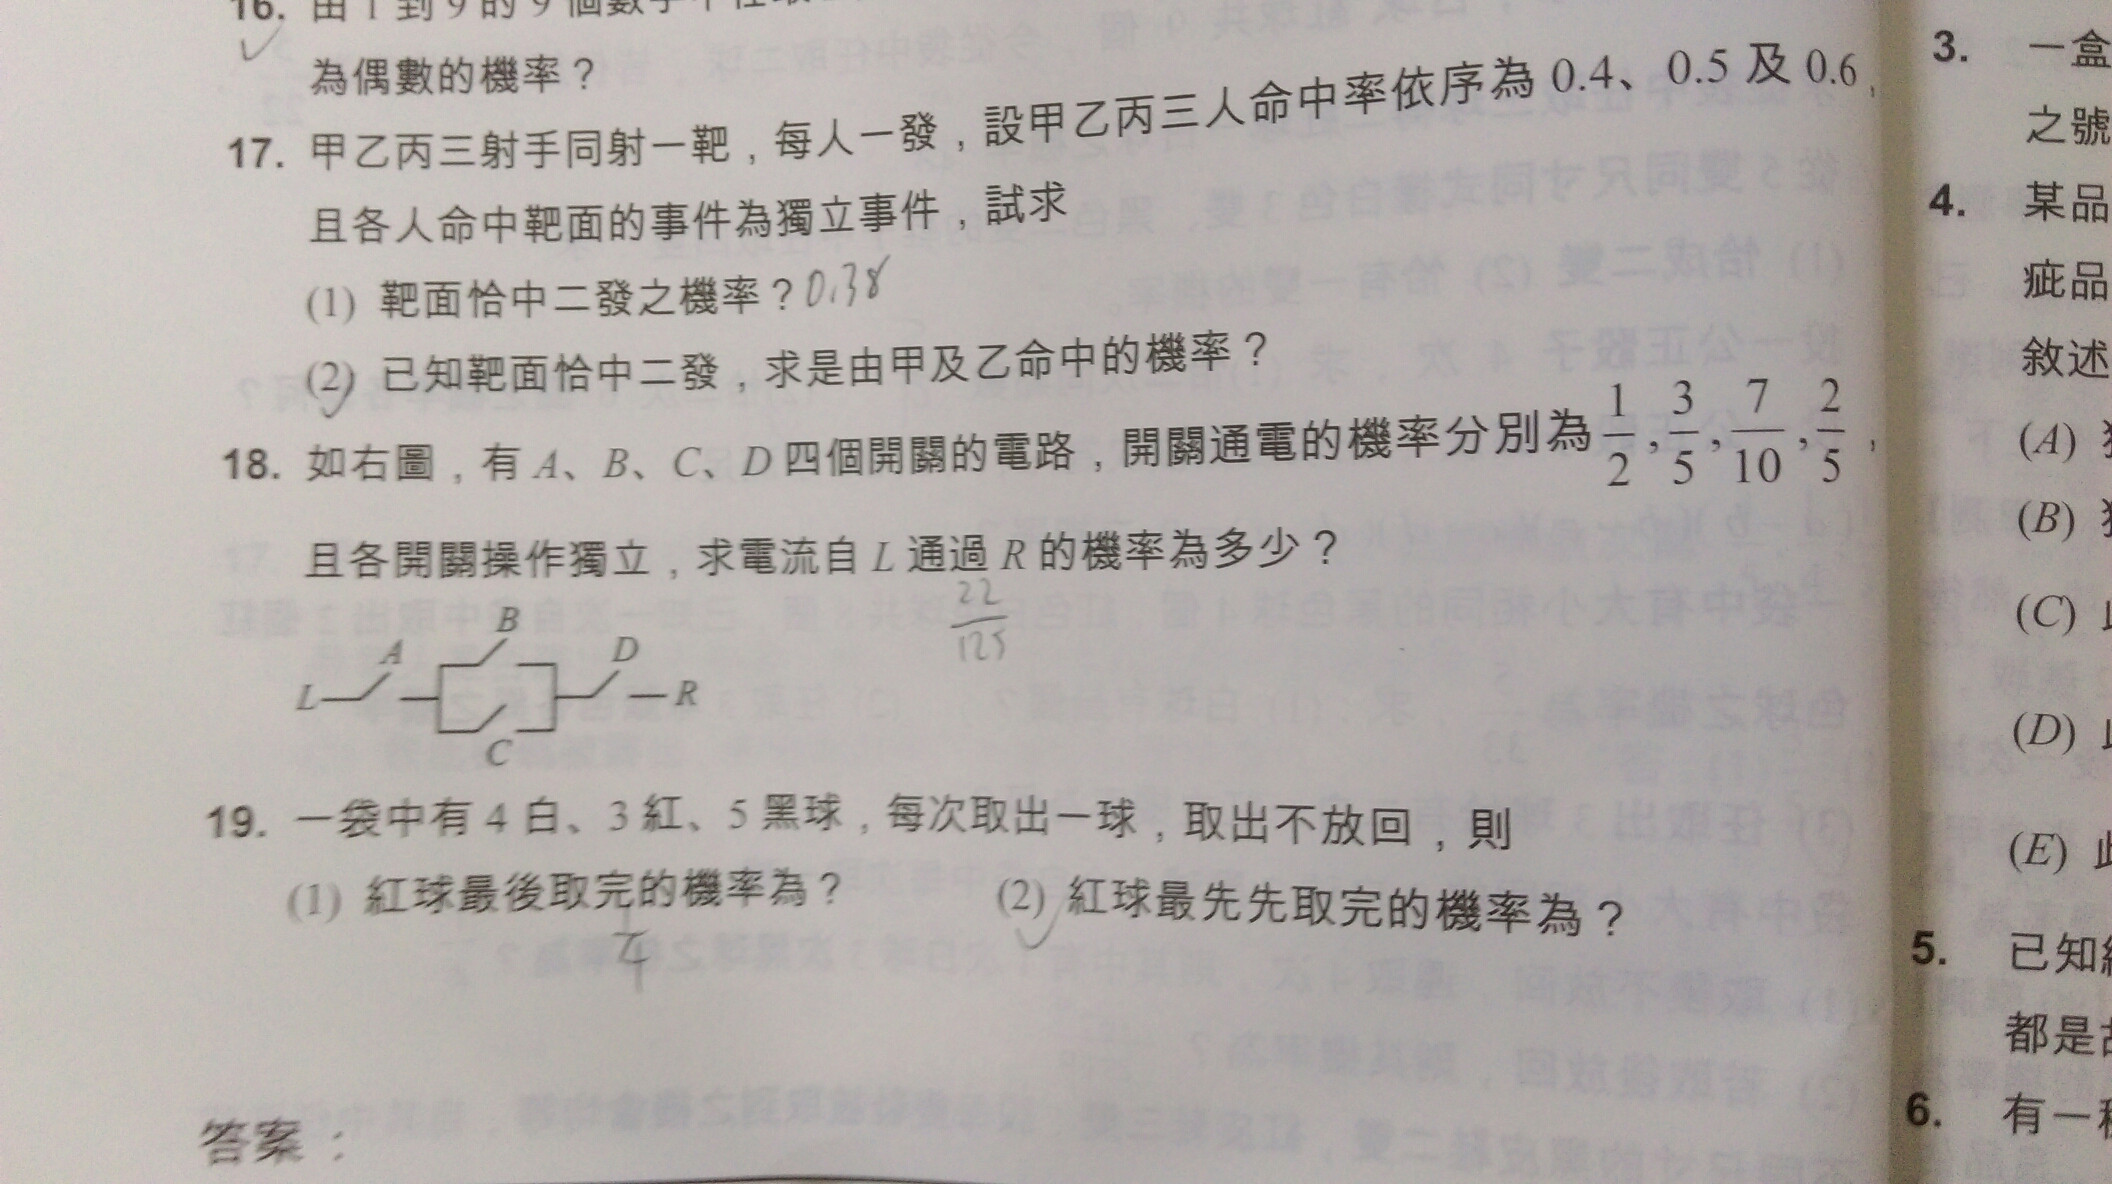 16. 由 1 到 9 的 9 個數字中任取
為偶數的機率？
17. 甲乙丙三射手同射一靶，每人一發，設甲乙丙三人命中率依序為 0.4、0.5 及 0.6，
且各人命中靶面的事件為獨立事件，試求
(1) 靶面恰中二發之機率？0.38
(2) 已知靶面恰中二發，求是由甲及乙命中的機率？
18. 如右圖，有 A、B、C、D 四個開關的電路，開關通電的機率分別為 1/2, 3/5, 7/10, 2/5，
且各開關操作獨立，求電流自 L 通過 R 的機率為多少？
22/125
B
A
D
L
R
C
19. 一袋中有 4 白、3 紅、5 黑球，每次取出一球，取出不放回，則
(1) 紅球最後取完的機率為？ (2) 紅球最先先取完的機率為？
1/4
答案：
3. 一盒
之號
4. 某品
疵品
敘述
(A)
(B)
(C)
(D)
(E)
5. 已知
都是
6. 有一